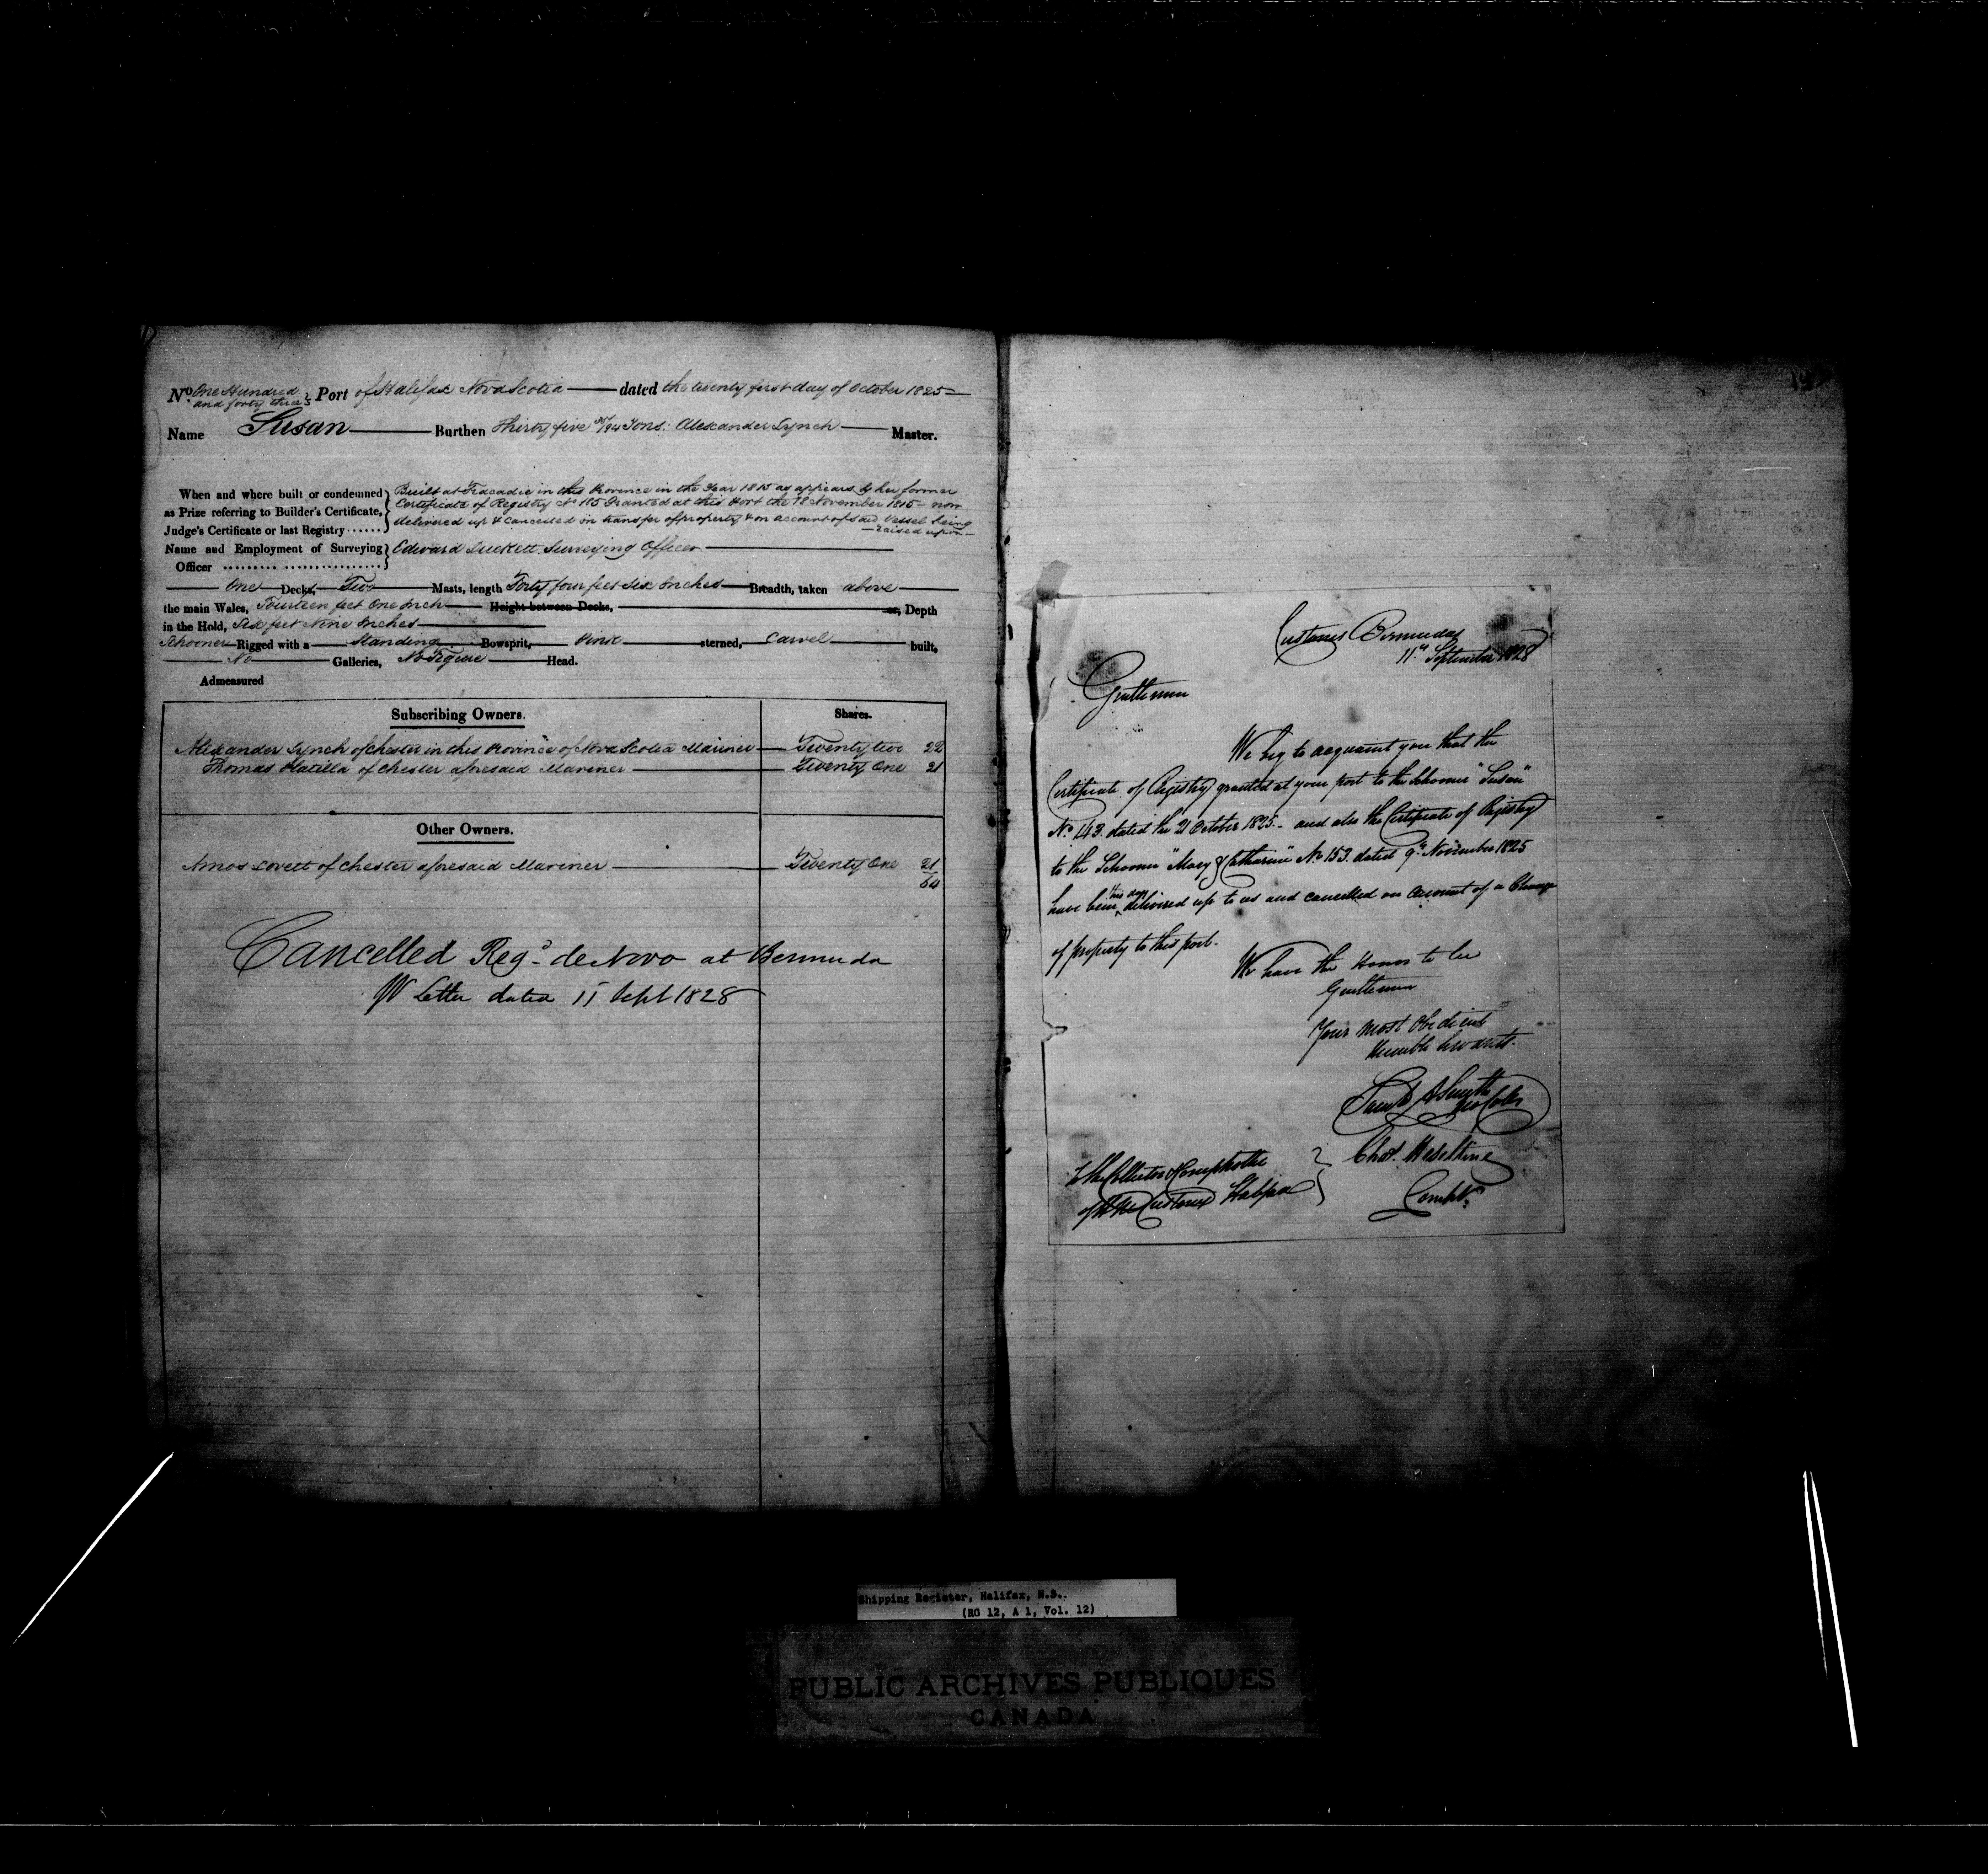 No. One Hundred and forty three } Port of Halifax Nova Scotia dated the twenty first day of October 1825
Name Susan Burthen Thirty five /94 Tons. Alexander Lynch Master.
When and where built or condemned as Prize referring to Builder's Certificate, Judge's Certificate or last Registry ...... } Built at Tracadie in this Province in the Year 1815 as appears by her former
Certificate of Registry No 185 Granted at this Port the 18 November 1815 - now
delivered up & cancelled on transfer of property & on account of said Vessel being
raised upon
Name and Employment of Surveying Officer ......... ................. } Edward Luckett Surveying Officer
One Decks, Two Masts, length Forty four feet Six Inches Breadth, taken above
the main Wales, Fourteen feet One Inch Height between Decks, Depth
in the Hold, Six feet Nine Inches
Schooner Rigged with a Standing Bowsprit, Pink sterned, Carvel built,
No Galleries, No Figure Head.
Admeasured
Subscribing Owners. Shares.
Alexander Lynch of Chester in this Province of Nova Scotia Mariner Twenty two 22
Thomas of Chester aforesaid Mariner Twenty One 21
Other Owners.
Amos Lovett of Chester aforesaid Mariner Twenty One 21
64
Cancelled Regd. de Novo at Bermuda
Letter dated 11 Sept 1828
Customs Bermuda
11th September 1828
Gentlemen
We beg to acquaint you that the
Certificate of Registry granted at your port to the Schooner "Susan"
No. 143. dated the 21 October 1825. - and also the Certificate of Registry
to the Schooner "Mary & Catharine" No 153. dated 9th November 1825
have been this day delivered up to us and cancelled on account of a Change
of property to this port.
We have the Honor to be
Gentlemen
Your Most Obedient
Humble Servants.
Saml A Smith
Chas. Heseltine
Compr.
To the Collector & Comptroller
of His M Customs Halifax
Shipping Register, Halifax, N.S..
(RG 12, A 1, Vol. 12)
PUBLIC ARCHIVES PUBLIQUES
CANADA